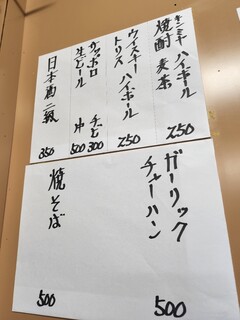 キンミヤ ハイボール
焼酎 麦茶 250
ウイスキー ハイボール
トリス 250
サッポロ チビ 300
生ビール 中 500
日本酒二級 350
ガーリック
チャーハン 500
焼そば 500